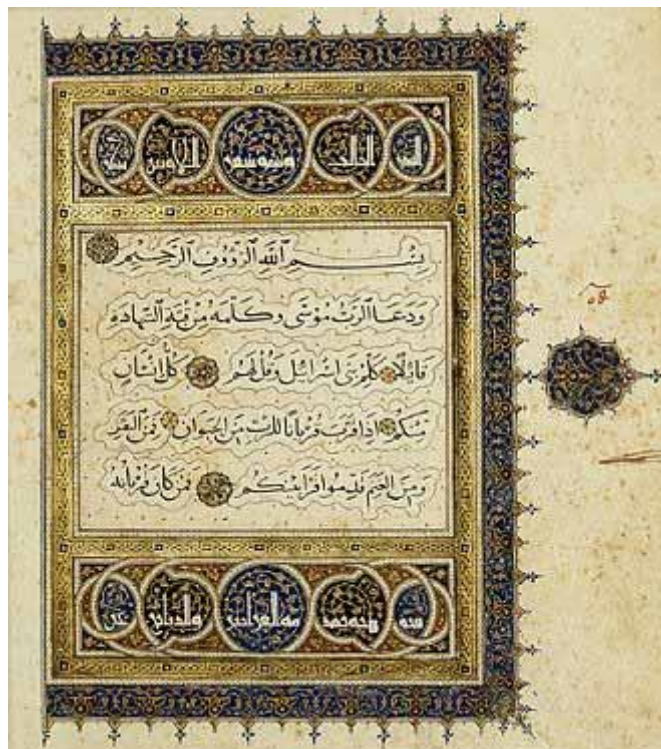 السفر الثالث وهو سفر اللاويين
بِسْمِ اللهِ الرَّؤُوفِ الرَّحِيمِ
وَدَعَا الرَّبُّ مُوسَى وكلَّمَهُ مِنْ قبَّةِ الشهادة
قائلًا كلِّم بني اسرائيل وَقُلْ لهُمْ كلُّ انسَانٍ
منكم اذا قرَّبَ قُربانًا للربِّ مِنَ الحيوان فمن البقر
وَمِنَ الغنم فقدِّموا قرابينكم فمَن كان قُربانُه